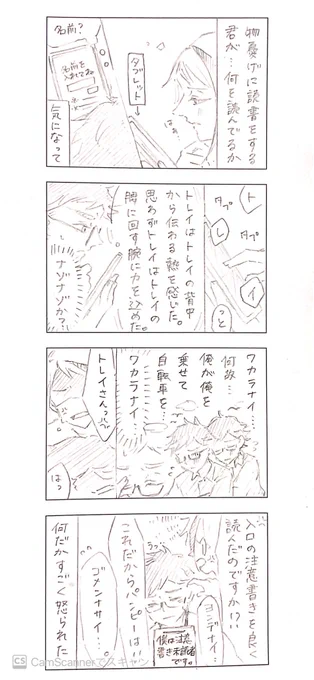 物憂げに読書をする
君が…何を読んでるか
はぁ…
タブレット→
名前?
名前を
入れてね
気になって
ト
タプ
レ
タプ
イ
っと
トレイはトレイの背中
から伝わる熱を感じた。
思わずトレイはトレイの
腰に回す腕に力を込めた。
ナゾナゾか?
ワカラナイ…
何故…
俺が俺を
乗せて
自転車を…
ワカラナイ…
トレイさんっ
はっ
入口の注意書きを良く
読んだのですか!?
ヨンデナイ…
うっ
僕は注意
書き未読者
です。
これだからパンピーは!!
ゴメンナサイ…。
何だかすごく怒られた
CS CamScannerでスキャン